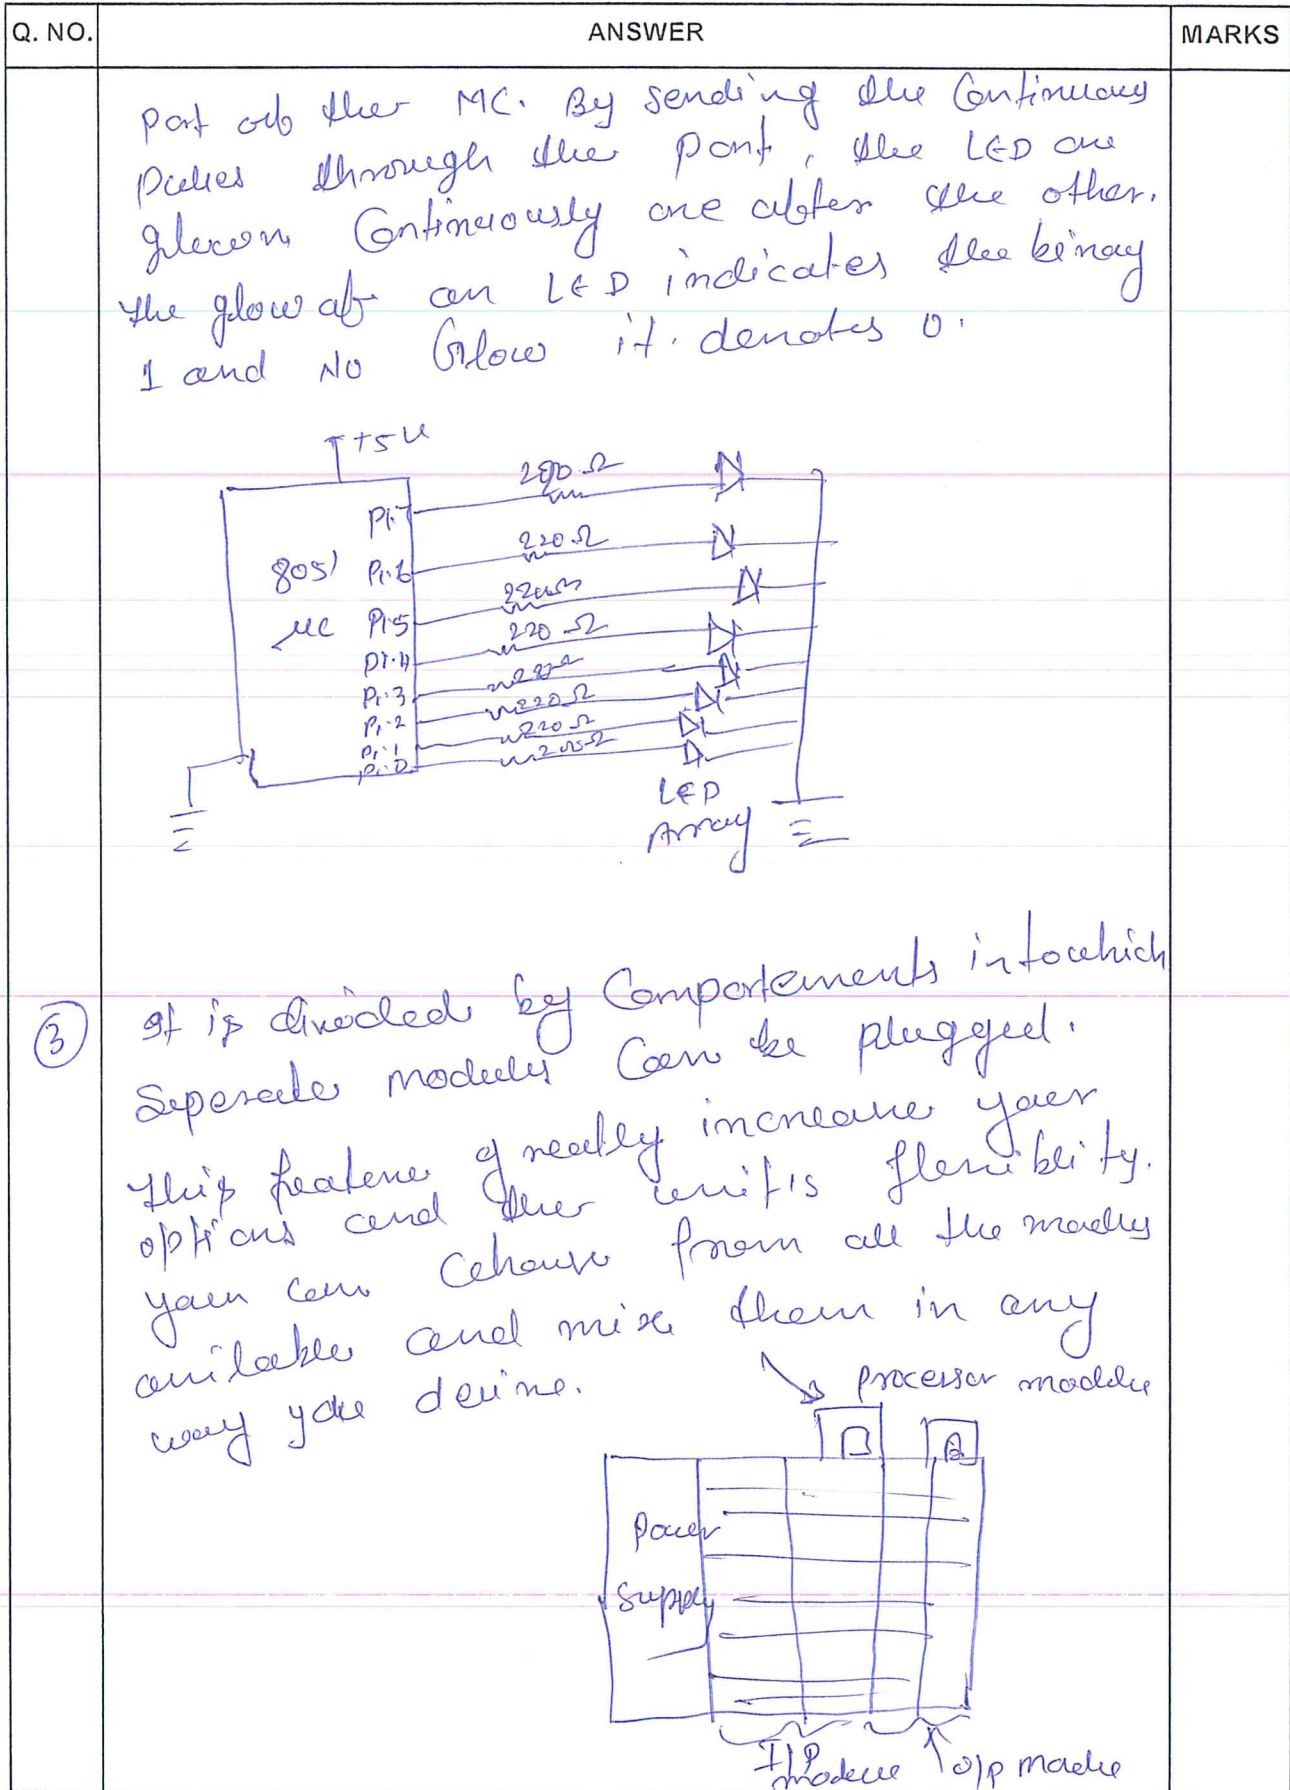 Q. NO. ANSWER MARKS
Port of the MC. By sending the Continuous
Pulses through the port, the LED are
glown Continuously one after the other.
the glow of an LED indicates the binay
1 and No Glow it. denotes 0.
+5V
8051
MC
P1.7 200Ω
P1.6 220Ω
P1.5 220Ω
P1.4 220Ω
P1.3 220Ω
P1.2 220Ω
P1.1 220Ω
P1.0 200Ω
LED
Array
3 It is divided by Compartements into which
Seperate modules Can be plugged.
This feature greatly increase your
options and the unit's flexiblity.
you can Choose from all the modules
available and mix them in any
way you desire.
processor module
Power
Supply
I/P
module O/P module